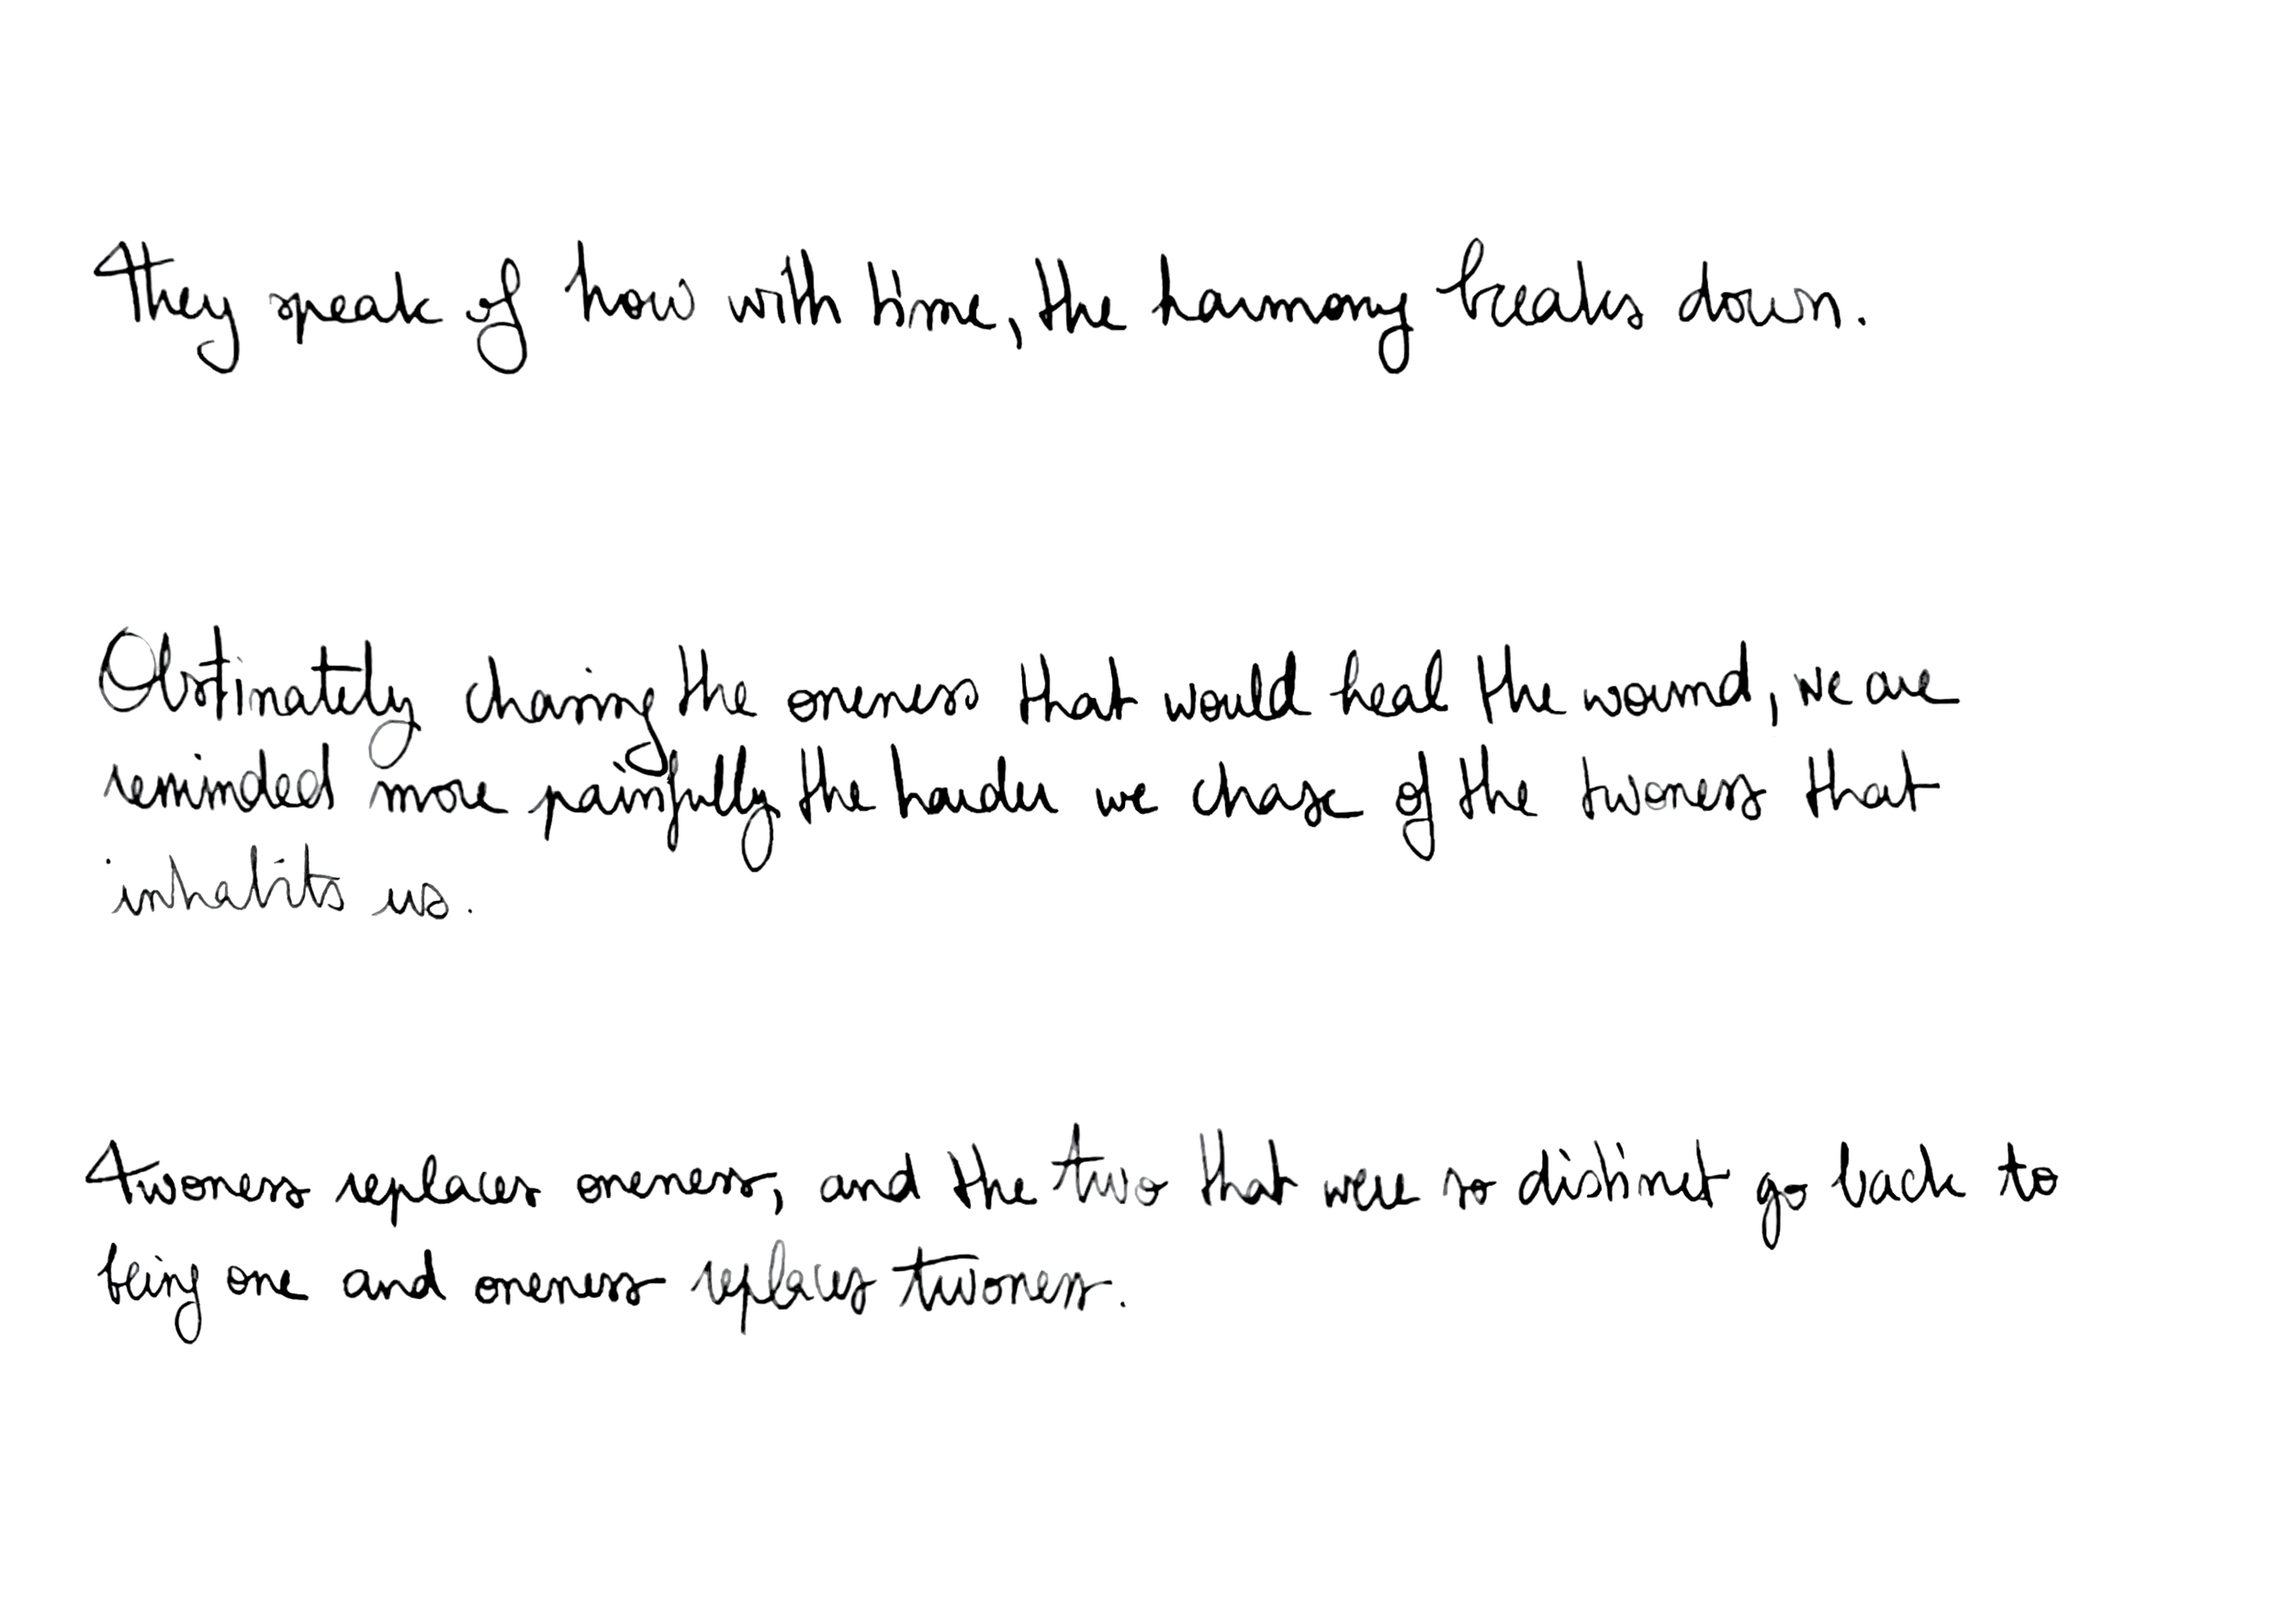 They speak of how with time, the harmony breaks down.
Obstinately chasing the oneness that would heal the wound, we are
reminded more painfully the harder we chase of the twoness that
inhabits us.
twoness replaces oneness, and the two that were so distinct go back to
being one and oneness replaces twoness.